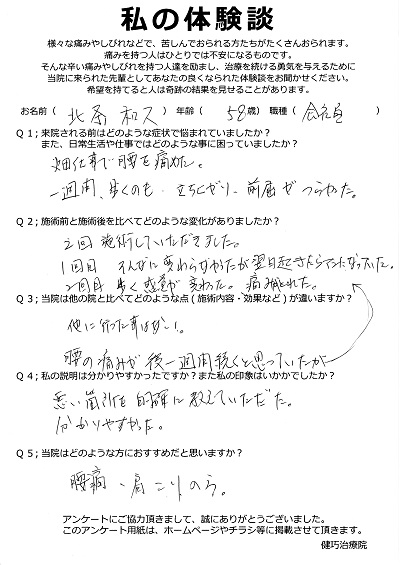 私の体験談
様々な痛みやしびれなどで、苦しんでおられる方たちがたくさんおられます。
痛みを持つ人はひとりでは不安になるものです。
そんな辛い痛みやしびれを持つ人達を励まし、治療を続ける勇気を与えるために
当院に来られた先輩としてあなたの良くなられた体験談をお聞かせください。
希望を持てると人は奇跡の結果を見せることがあります。
お名前（ 北条 和久 ）年齢（ 58歳）職種（ 会社員 ）
Q１；来院される前はどのような症状で悩まれていましたか？
また、日常生活や仕事ではどのような事に困っていましたか？
畑仕事で腰を痛めた。
一週間、歩くのも、立ちくぜり、前屈がつらかった。
Q２；施術前と施術後を比べてどのような変化がありましたか？
2回施術していただきました。
1回目 そんなに変わらなかったが翌日起きたら
2回目 歩く感覚が変わった。痛みがとれた。
Q３；当院は他の院と比べてどのような点（施術内容・効果など）が違いますか？
他に行った事はない。
腰の痛みが後一週間続くと思っていたが
Q４；私の説明は分かりやすかったですか？また私の印象はいかがでしたか？
悪い箇所を的確に教えていただだ。
分かりやすかった。
Q５；当院はどのような方におすすめだと思いますか？
腰痛、肩こりの方。
アンケートにご協力頂きまして、誠にありがとうございました。
このアンケート用紙は、ホームページやチラシ等に掲載させて頂きます。
健巧治療院